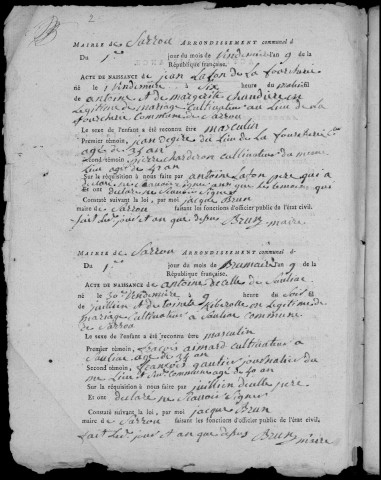 2
MAIRIE de Sarrou ARRONDISSEMENT communal d
Du 1er jour du mois de Vendemiere l'an 9 de la
République française.
ACTE DE NAISSANCE de jean Lafon de La fourcherie
né le 1 Vendemiere à six heure du matin fil
de antoine et de margerite chaudiere en
Legitime de mariage Cultivateur au Lieu de La
fourcherie Commune de Sarrou
Le sexe de l'enfant a été reconnu être masculin
Premier témoin, jean degire du Lieu de La fourcherie
age de 35 an
Second témoin, pierre charderon cultivateur du meme
Lieu age de 47 an
Sur la réquisition à nous faite par antoine Lafon pere qui a
déclaré ne Savoir Signer ainsi que les temoins qui
Et ont declare ne Savoir Signer
Constaté suivant la loi, par moi jacque Brun
maire de Sarrou faisant les fonctions d'officier public de l'état civil.
fait Led. jour et an que depus Brun maire
MAIRIE de Sarrou ARRONDISSEMENT communal d
Du 1er jour du mois de Brumaire l'an 9 de la
République française.
ACTE DE NAISSANCE de antoine decelle de Sauliac
né le 30e Vendemiere à 9 heure du Soir fil
de juillien et de toinete Riberolle en Legitime de
mariage Cultivateur à Sauliac commune
de Sarrou
Le sexe de l'enfant a été reconnu être masculin
Premier témoin, aimard cultivateur à
Sauliac age de 34 an
Second témoin, francois gautier journalier du
me Lieu et Sud Commune age de 40 an
Sur la réquisition à nous faite par juillien decelle pere
Et ont declare ne Scavoir Signer
Constaté suivant la loi, par moi jacque Brun
maire de Sarrou faisant les fonctions d'officier public de l'état civil.
fait Led. jour et an que depus Brun maire